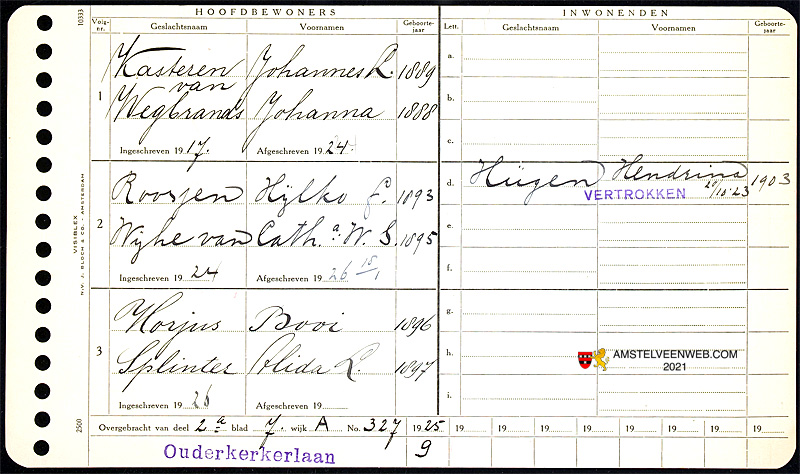 HOOFDBEWONERS INWONENDEN
Volg-nr. Geslachtsnaam Voornamen Geboorte-jaar Lett. Geslachtsnaam Voornamen Geboorte-jaar
1
Kasteren van Johannes L. 1889
Wegbrands Johanna 1888
Ingeschreven 19 17. Afgeschreven 19 24.
a.
b.
c.
2
Roosjen Hylko f. 1893
Wyhe van Cath.a W. S. 1895
Ingeschreven 19 24 Afgeschreven 19 26 15/1
d. Hügen Hendrina 1903
VERTROKKEN 21/10-23
e.
f.
3
Horjus Booi 1896
Splinter Alida L. 1897
Ingeschreven 19 26 Afgeschreven 19
g.
h.
i.
Overgebracht van deel 2a blad 7. wijk A No. 327 1925 19 19 19 19 19 19 19 19
9
Ouderkerkerlaan
10333
VISIBLEX
N.V. J. BLOCH & CO. * AMSTERDAM
2500
AMSTELVEENWEB.COM
2021